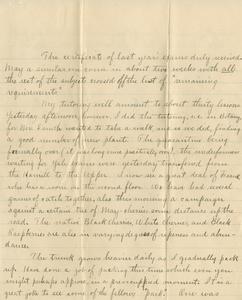 The certificate of last year's exams duly received
May a similar one come in about two weeks with all
the rest of the subjects crossed off the list of "remaining
requirements".
My tutoring will amount to about thirty lessons
Yesterday afternoon, however, I did the tutoring, i.e. in Botany,
for Mrs. wanted to take a walk and so we did, finding
a good number of new plants. The quarantine being
formally over (it was long since practically over), the underformers
waiting for Yale exams were yesterday transferred from
the Hamill to the Upper. I now see a great deal of
who has a room on the second floor. We have had several
games of catch together, also this morning a campaign
against a certain tree of May cherries some distance up the
road. The rated Black Cherries, White Cherries, and Black
Raspberries are also in varying degrees of ripeness and abun-
dance.
The trunk grows heavier daily as I gradually pack
up. Have done a job of packing this time which even you
might perhaps approve in a preoccupied moment. It's a
great joke to see some of the fellows "pack". One was